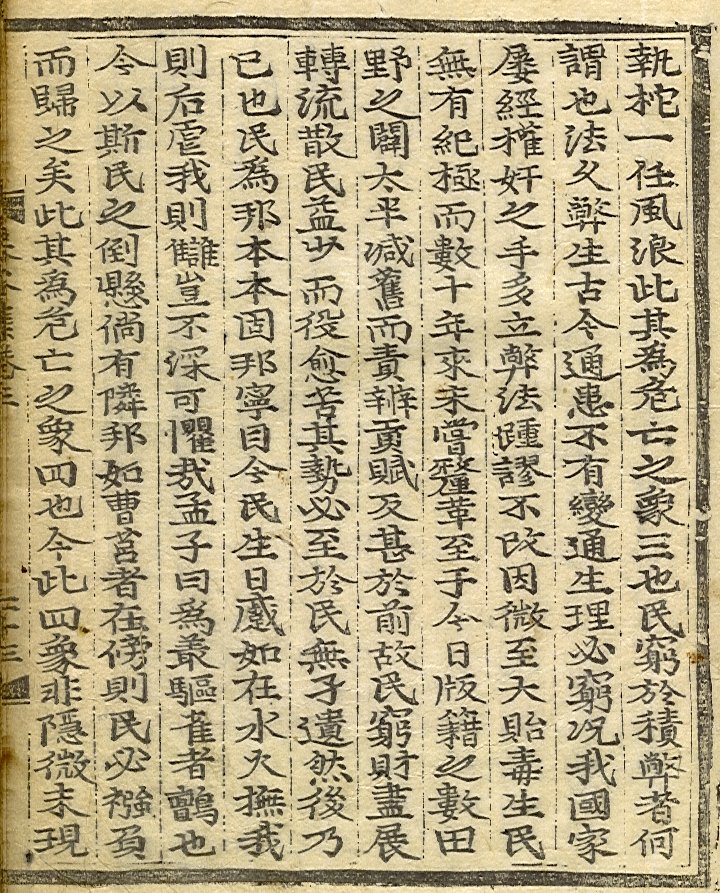 執柁一任風浪此其為危亡之象三也民窮於積弊者何
謂也法久弊生古今通患不有變通生理必窮况我國家
屢經權奸之手多立弊法踵謬不改因微至大貽毒生民
無有紀極而數十年來未嘗釐革至于今日版籍之數田
野之闢太半減舊而責辦貢賦反甚於前故民窮財盡展
轉流散民益少而役愈苦其勢必至於民無孑遺然後乃
已也民為邦本本固邦寧目今民生日蹙如在水火撫我
則后虐我則讎豈不深可懼哉孟子曰為叢驅雀者鸇也
今以斯民之倒懸倘有隣邦如曹莒者在傍則民必襁負
而歸之矣此其為危亡之象四也今此四象非隱微未現